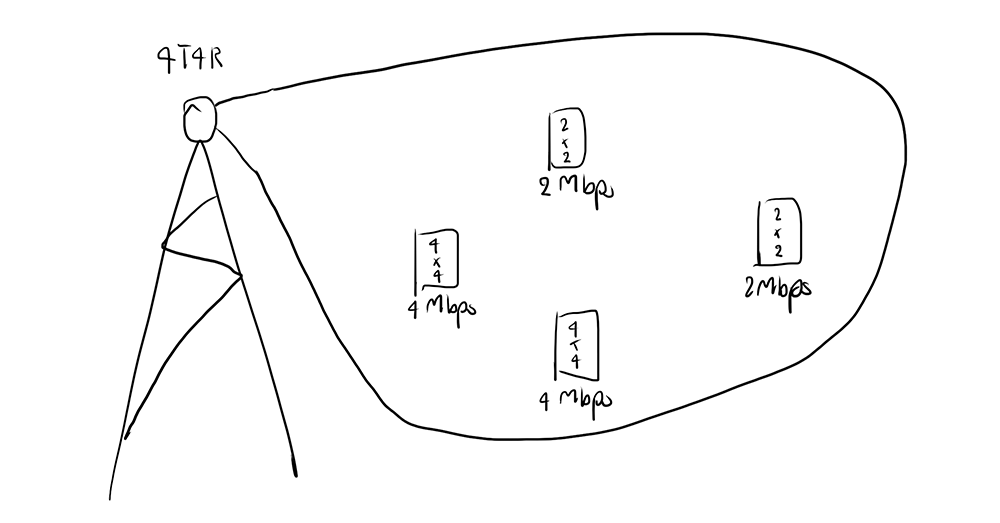 4T4R
2
x
2
2 Mbps
2
x
2
2 Mbps
4
x
4
4 Mbps
4
x
4
4 Mbps